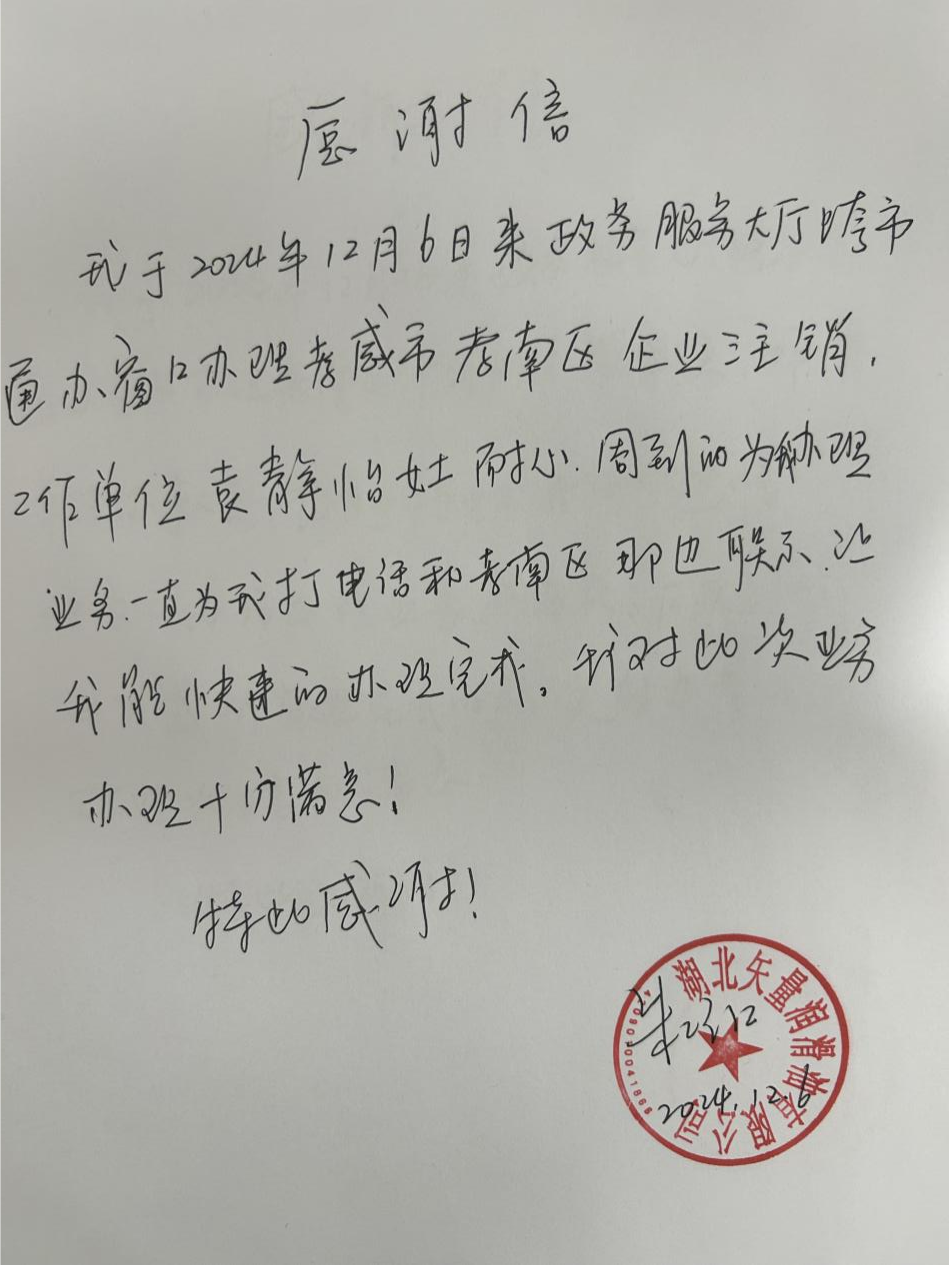 感谢信
我于2024年12月6日来政务服务大厅跨市
通办窗口办理孝感市孝南区企业注销,
工作单位袁静怡女士耐心.周到的为我办理
业务.一直为我打电话和孝南区那边联系.让
我能快速的办理完成。我对此次业务
办理十分满意!
特此感谢!
湖北矢量润滑油有限公司
2024.12.6